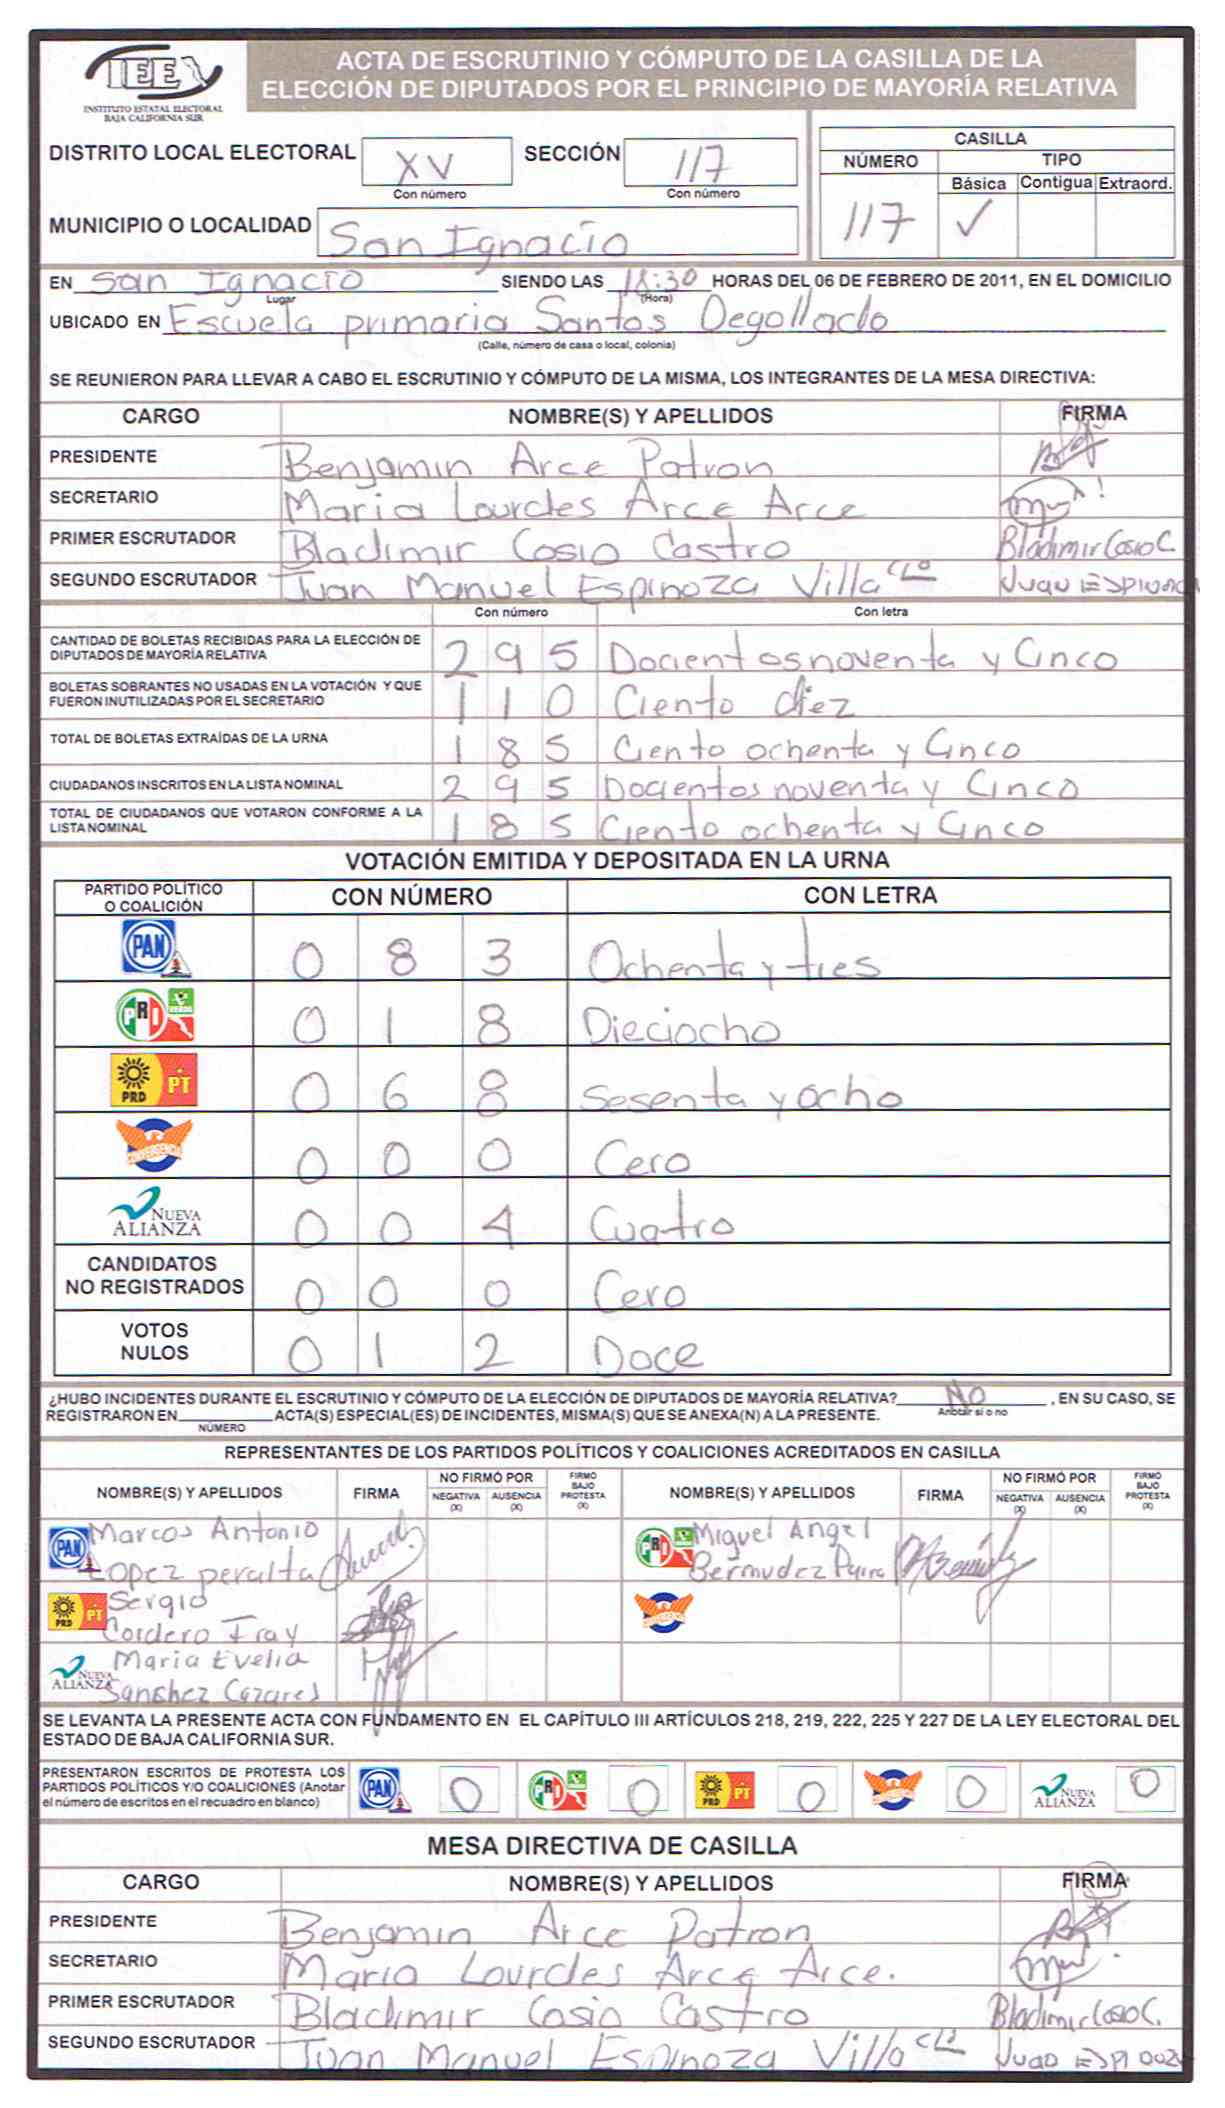 IEEX
INSTITUTO ESTATAL ELECTORAL
BAJA CALIFORNIA SUR
ACTA DE ESCRUTINIO Y CÓMPUTO DE LA CASILLA DE LA
ELECCIÓN DE DIPUTADOS POR EL PRINCIPIO DE MAYORÍA RELATIVA
DISTRITO LOCAL ELECTORAL XV SECCIÓN 117
Con número Con número
CASILLA
NÚMERO TIPO
Básica Contigua Extraord.
117 ✓
MUNICIPIO O LOCALIDAD San Ignacio
EN San Ignacio SIENDO LAS 18:30 HORAS DEL 06 DE FEBRERO DE 2011, EN EL DOMICILIO
Lugar (Hora)
UBICADO EN Escuela primaria Santos Degollado
(Calle, número de casa o local, colonia)
SE REUNIERON PARA LLEVAR A CABO EL ESCRUTINIO Y CÓMPUTO DE LA MISMA, LOS INTEGRANTES DE LA MESA DIRECTIVA:
CARGO NOMBRE(S) Y APELLIDOS FIRMA
PRESIDENTE Benjamin Arce Patron
SECRETARIO Maria Lourdes Arce Arce
PRIMER ESCRUTADOR Bladimir Cosio Castro Bladimir Cosio C.
SEGUNDO ESCRUTADOR Juan Manuel Espinoza Villa
Con número Con letra
CANTIDAD DE BOLETAS RECIBIDAS PARA LA ELECCIÓN DE
DIPUTADOS DE MAYORÍA RELATIVA 2 9 5 Docientos noventa y Cinco
BOLETAS SOBRANTES NO USADAS EN LA VOTACIÓN Y QUE
FUERON INUTILIZADAS POR EL SECRETARIO 1 1 0 Ciento diez
TOTAL DE BOLETAS EXTRAÍDAS DE LA URNA 1 8 5 Ciento ochenta y Cinco
CIUDADANOS INSCRITOS EN LA LISTA NOMINAL 2 9 5 Docientos noventa y Cinco
TOTAL DE CIUDADANOS QUE VOTARON CONFORME A LA
LISTA NOMINAL 1 8 5 Ciento ochenta y Cinco
VOTACIÓN EMITIDA Y DEPOSITADA EN LA URNA
PARTIDO POLÍTICO
O COALICIÓN CON NÚMERO CON LETRA
PAN 0 8 3 Ochenta y tres
PRI VERDE 0 1 8 Dieciocho
PRD PT 0 6 8 Sesenta y ocho
CONVERGENCIA 0 0 0 Cero
NUEVA ALIANZA 0 0 4 Cuatro
CANDIDATOS
NO REGISTRADOS 0 0 0 Cero
VOTOS
NULOS 0 1 2 Doce
¿HUBO INCIDENTES DURANTE EL ESCRUTINIO Y CÓMPUTO DE LA ELECCIÓN DE DIPUTADOS DE MAYORÍA RELATIVA? NO , EN SU CASO, SE
Anotar sí o no
REGISTRARON EN ACTA(S) ESPECIAL(ES) DE INCIDENTES, MISMA(S) QUE SE ANEXA(N) A LA PRESENTE.
NÚMERO
REPRESENTANTES DE LOS PARTIDOS POLÍTICOS Y COALICIONES ACREDITADOS EN CASILLA
NOMBRE(S) Y APELLIDOS FIRMA NO FIRMÓ POR NEGATIVA (X) AUSENCIA (X) FIRMÓ BAJO PROTESTA (X) NOMBRE(S) Y APELLIDOS FIRMA NO FIRMÓ POR NEGATIVA (X) AUSENCIA (X) FIRMÓ BAJO PROTESTA (X)
PAN Marcos Antonio PRI Miguel Angel
Lopez peralta Bermudez
PRD PT Sergio CONVERGENCIA
Cordero Fray
NUEVA ALIANZA Maria Evelia
Sanchez Cazares
SE LEVANTA LA PRESENTE ACTA CON FUNDAMENTO EN EL CAPÍTULO III ARTÍCULOS 218, 219, 222, 225 Y 227 DE LA LEY ELECTORAL DEL
ESTADO DE BAJA CALIFORNIA SUR.
PRESENTARON ESCRITOS DE PROTESTA LOS
PARTIDOS POLÍTICOS Y/O COALICIONES (Anotar
el número de escritos en el recuadro en blanco) PAN 0 PRI 0 PRD PT 0 CONVERGENCIA 0 NUEVA ALIANZA 0
MESA DIRECTIVA DE CASILLA
CARGO NOMBRE(S) Y APELLIDOS FIRMA
PRESIDENTE Benjamin Arce Patron
SECRETARIO Maria Lourdes Arce Arce.
PRIMER ESCRUTADOR Bladimir Cosio Castro Bladimir Cosio C.
SEGUNDO ESCRUTADOR Juan Manuel Espinoza Villa